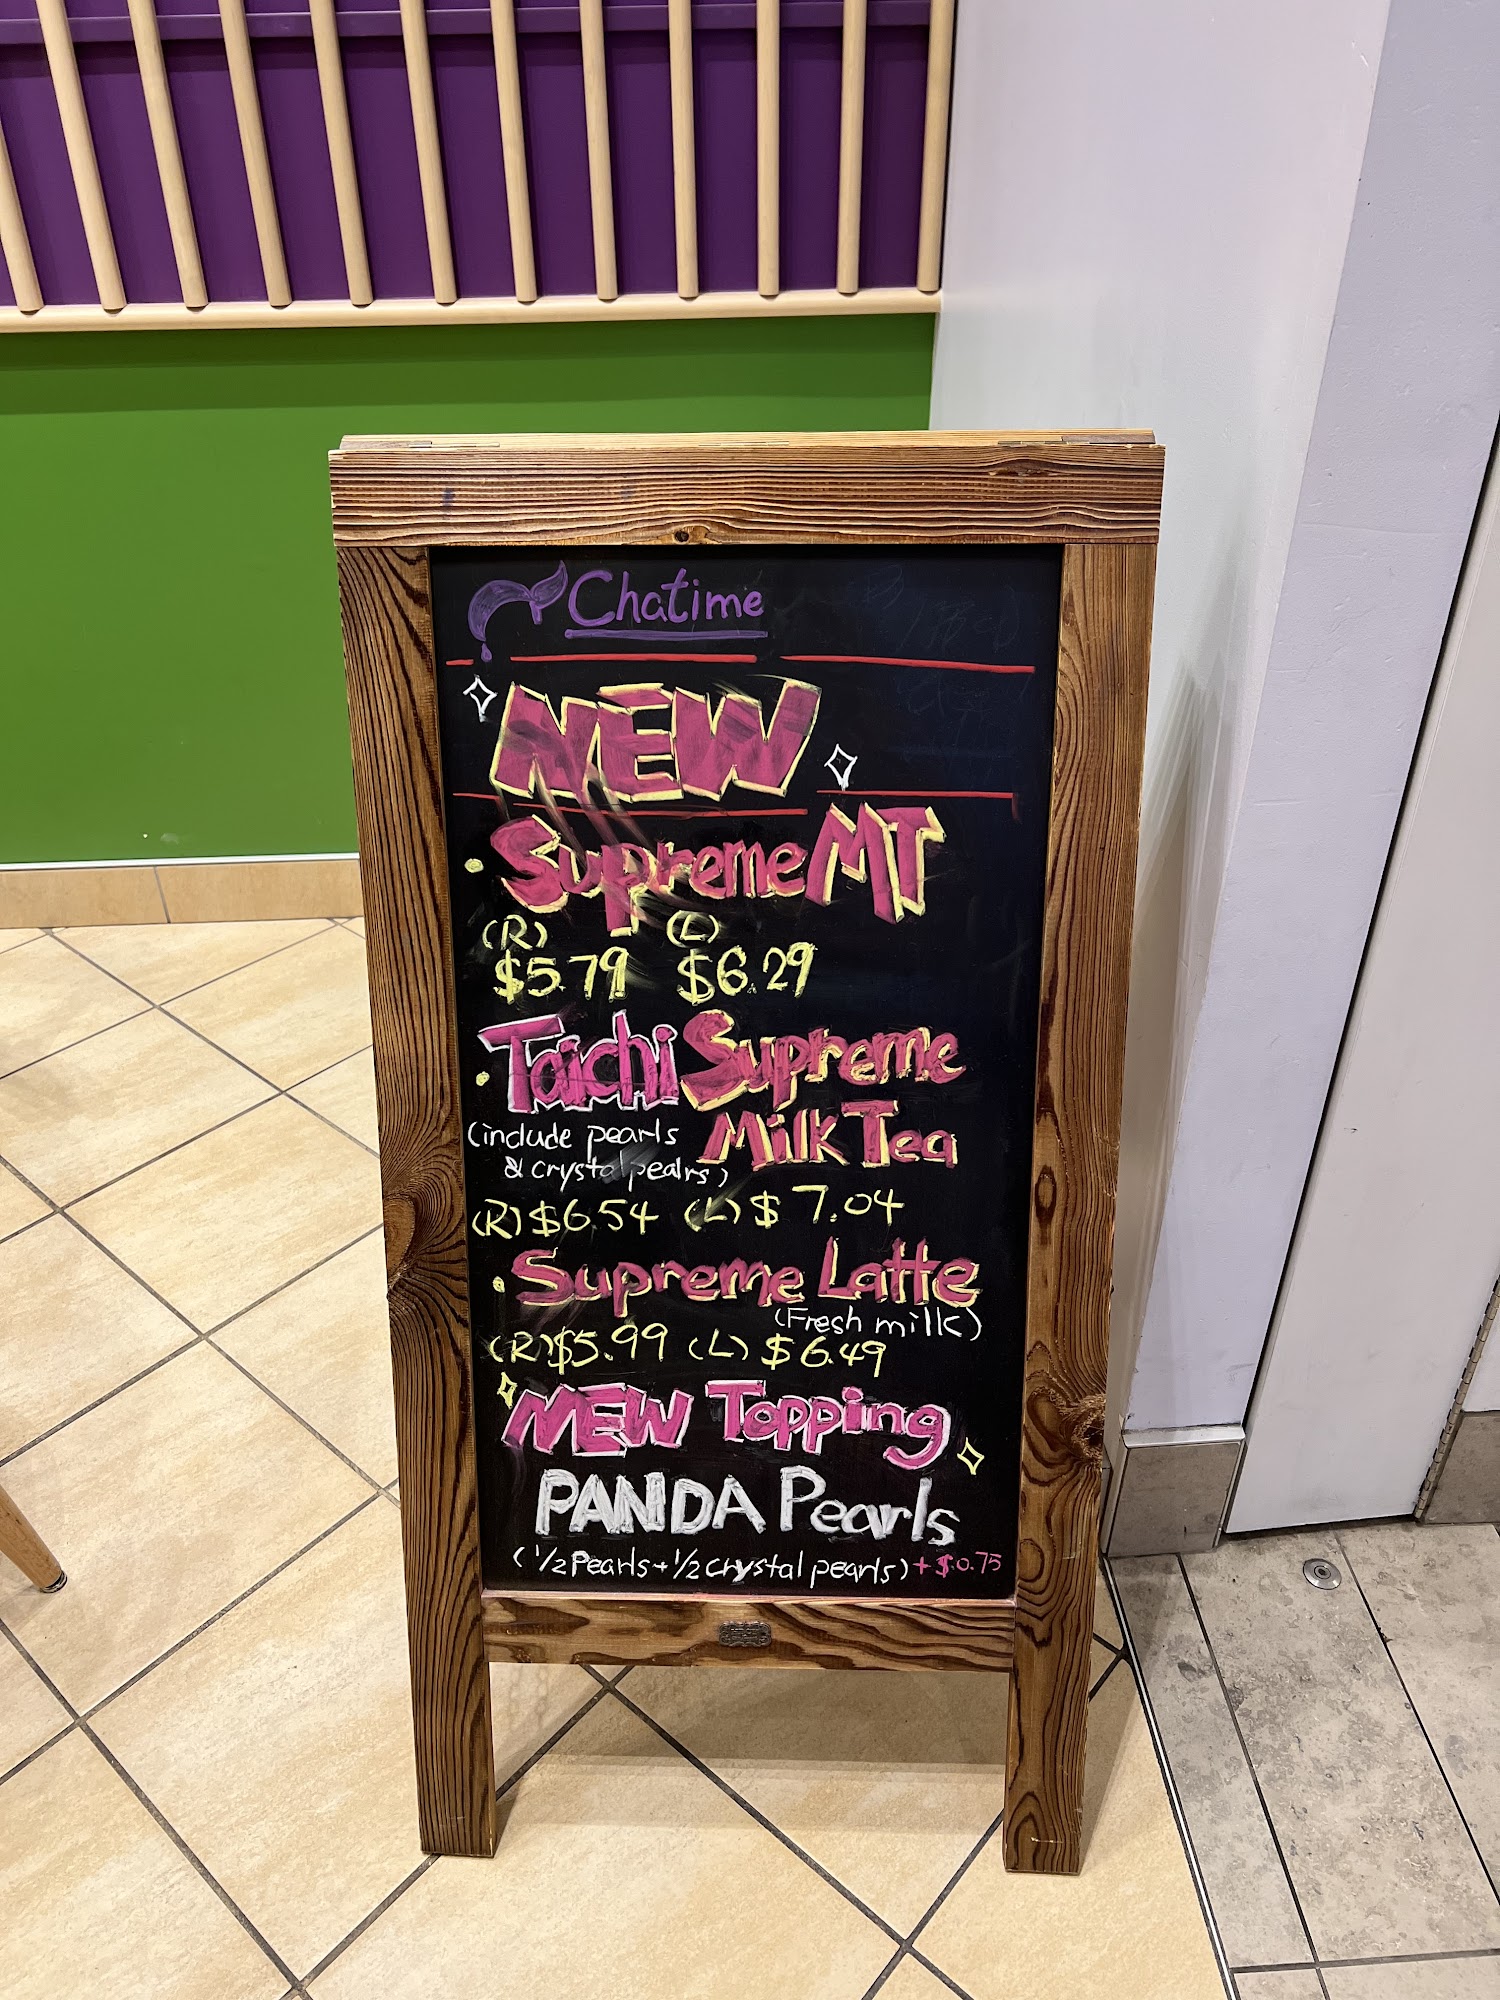 Chatime
NEW
• Supreme MT
(R) (L)
$5.79 $6.29
• Taichi Supreme
Milk Tea
(include pearls
& crystal pealrs)
(R) $6.54 (L) $7.04
• Supreme Latte
(Fresh milk)
(R) $5.99 (L) $6.49
NEW Topping
PANDA Pearls
(1/2 Pearls + 1/2 crystal pearls) + $0.75